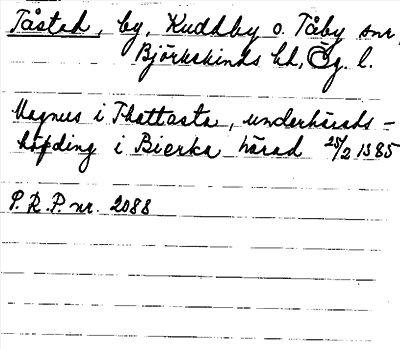 Tåstad, by, Kuddby o. Tåby snr,
Björkekinds hd, Ög. l.
Magnus i Thattasta, underhärads-
höfding i Bierka härad 25/2 1385
P.R.P. nr. 2088